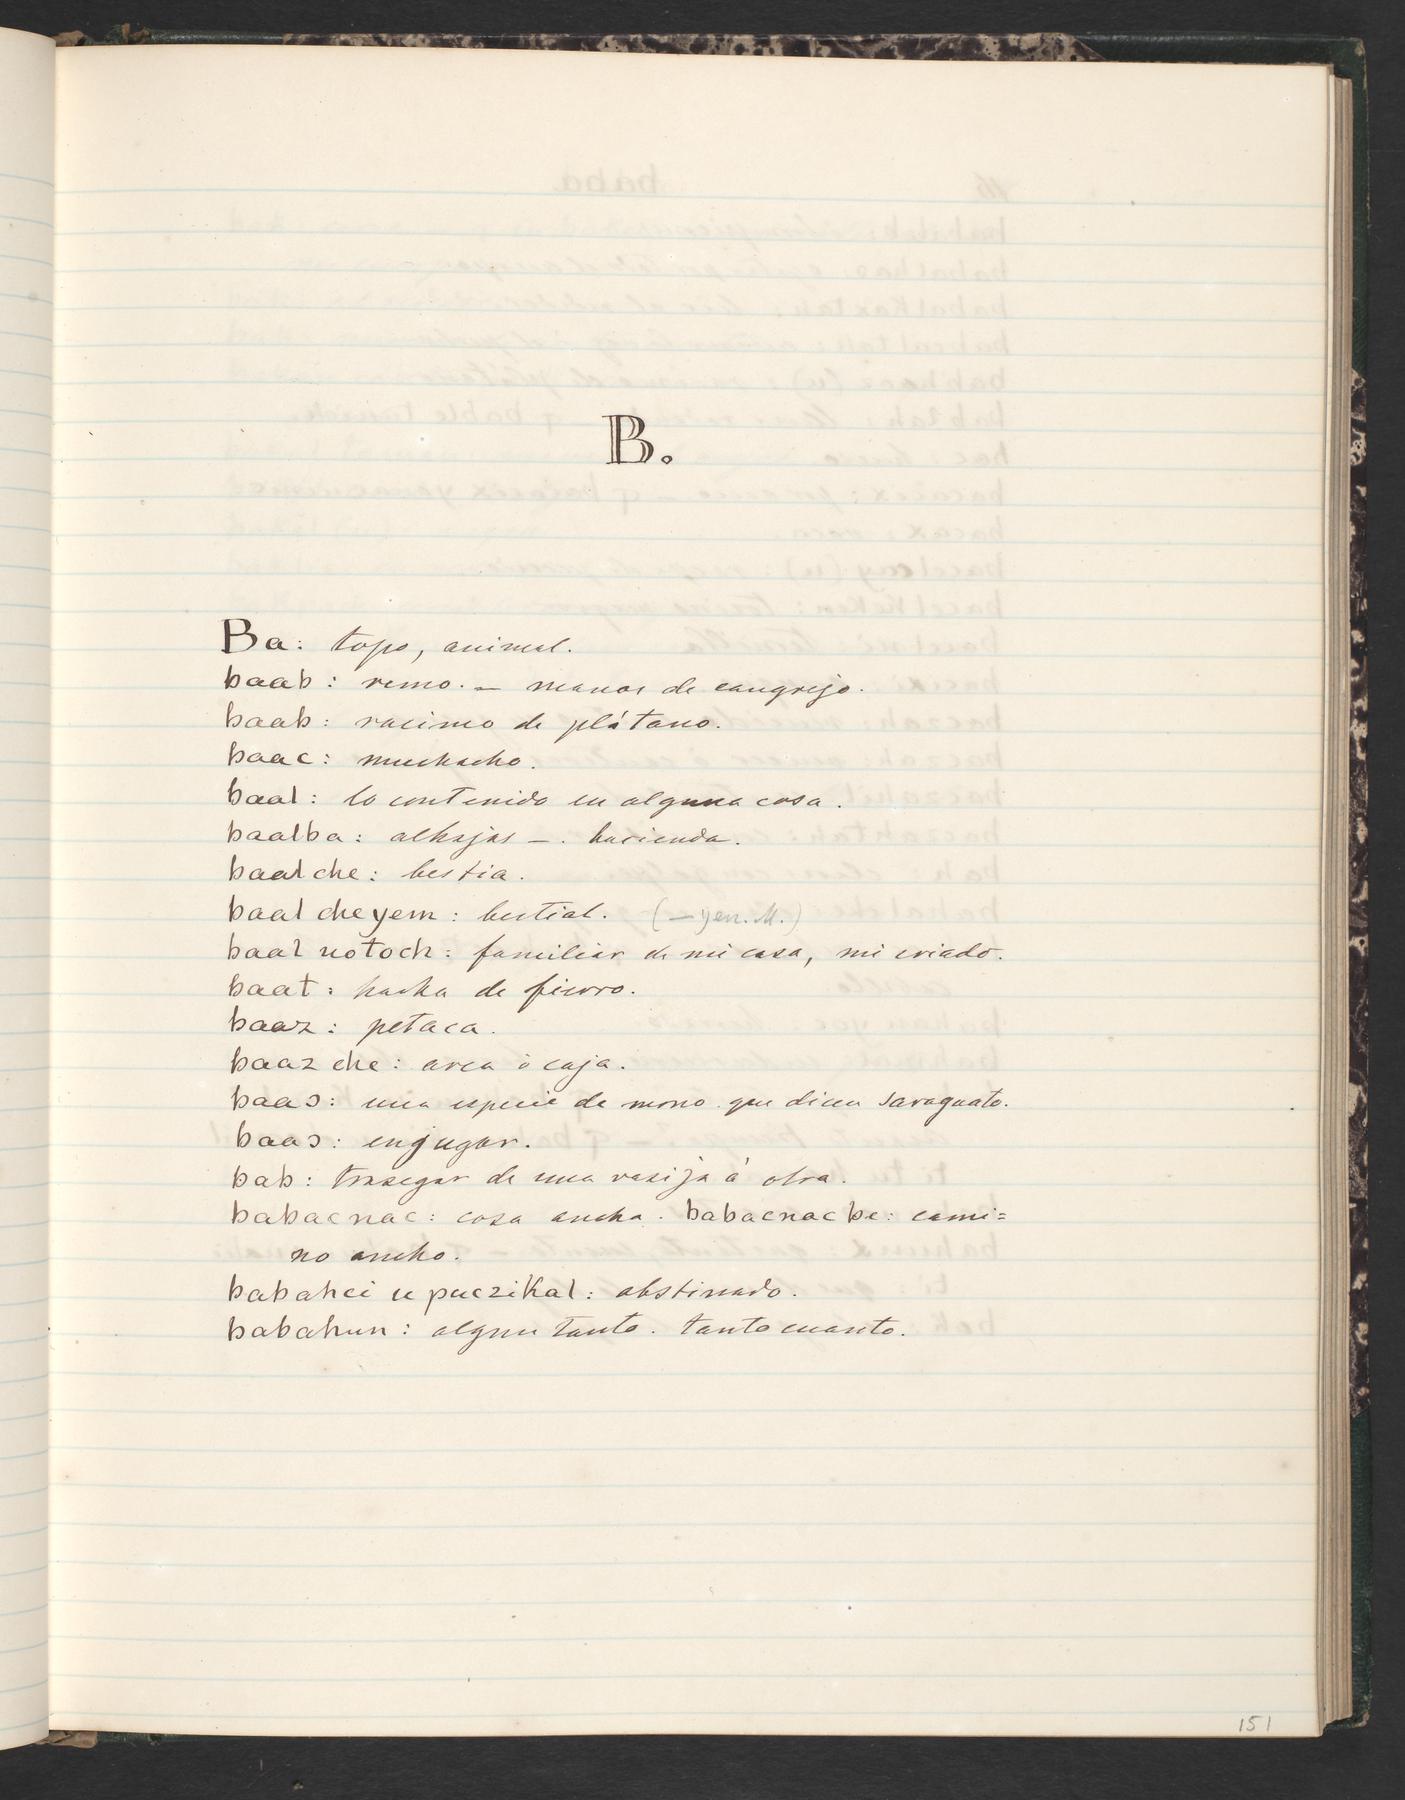 B.
Ba: topo, animal.
baab: remo. — manos de cangrejo.
baab: racimo de plátano.
baac: muchacho.
baal: lo contenido en alguna cosa.
baalba: alhajas —. hacienda.
baalche: bestia.
baalcheyem: bestial. (—yen. M.)
baal uotoch: familiar de mi casa, mi criado.
baat: hacha de fierro.
baaz: petaca.
baazche: arca ò caja.
baaɔ: una especie de mono que dicen saraguato.
baaɔ: enjugar.
bab: trasegar de una vasija á otra.
babacnac: cosa ancha. babacnac be: cami=
no ancho.
babahci u puczikal: obstinado.
babahun: algun tanto. tanto cuanto.
151